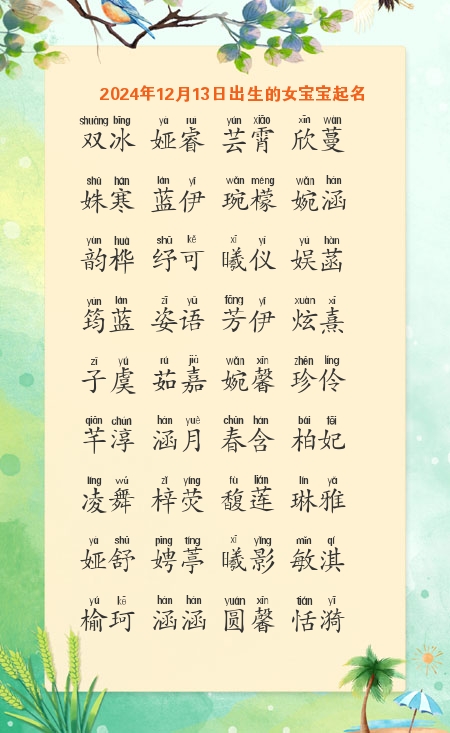 2024年12月13日出生的女宝宝起名
shuāng bīng yà ruì yún xiāo xīn wàn
双冰 娅睿 芸霄 欣蔓
shū hán lán yī wǎn méng wǎn hán
姝寒 蓝伊 琬檬 婉涵
yùn huà shū kě xī yí yú hàn
韵桦 纾可 曦仪 娱菡
yún lán zī yǔ fāng yī xuàn xī
筠蓝 姿语 芳伊 炫熹
zǐ yú rú jiā wǎn xīn zhēn líng
子虞 茹嘉 婉馨 珍伶
qiān chún hán yuè chūn hán bái fēi
芊淳 涵月 春含 柏妃
líng wǔ zǐ yíng fù lián lín yǎ
凌舞 梓荧 馥莲 琳雅
yà shū pīng tíng xī yǐng mǐn qí
娅舒 娉葶 曦影 敏淇
yú kē hán hán yuán xīn tián yī
榆珂 涵涵 圆馨 恬漪